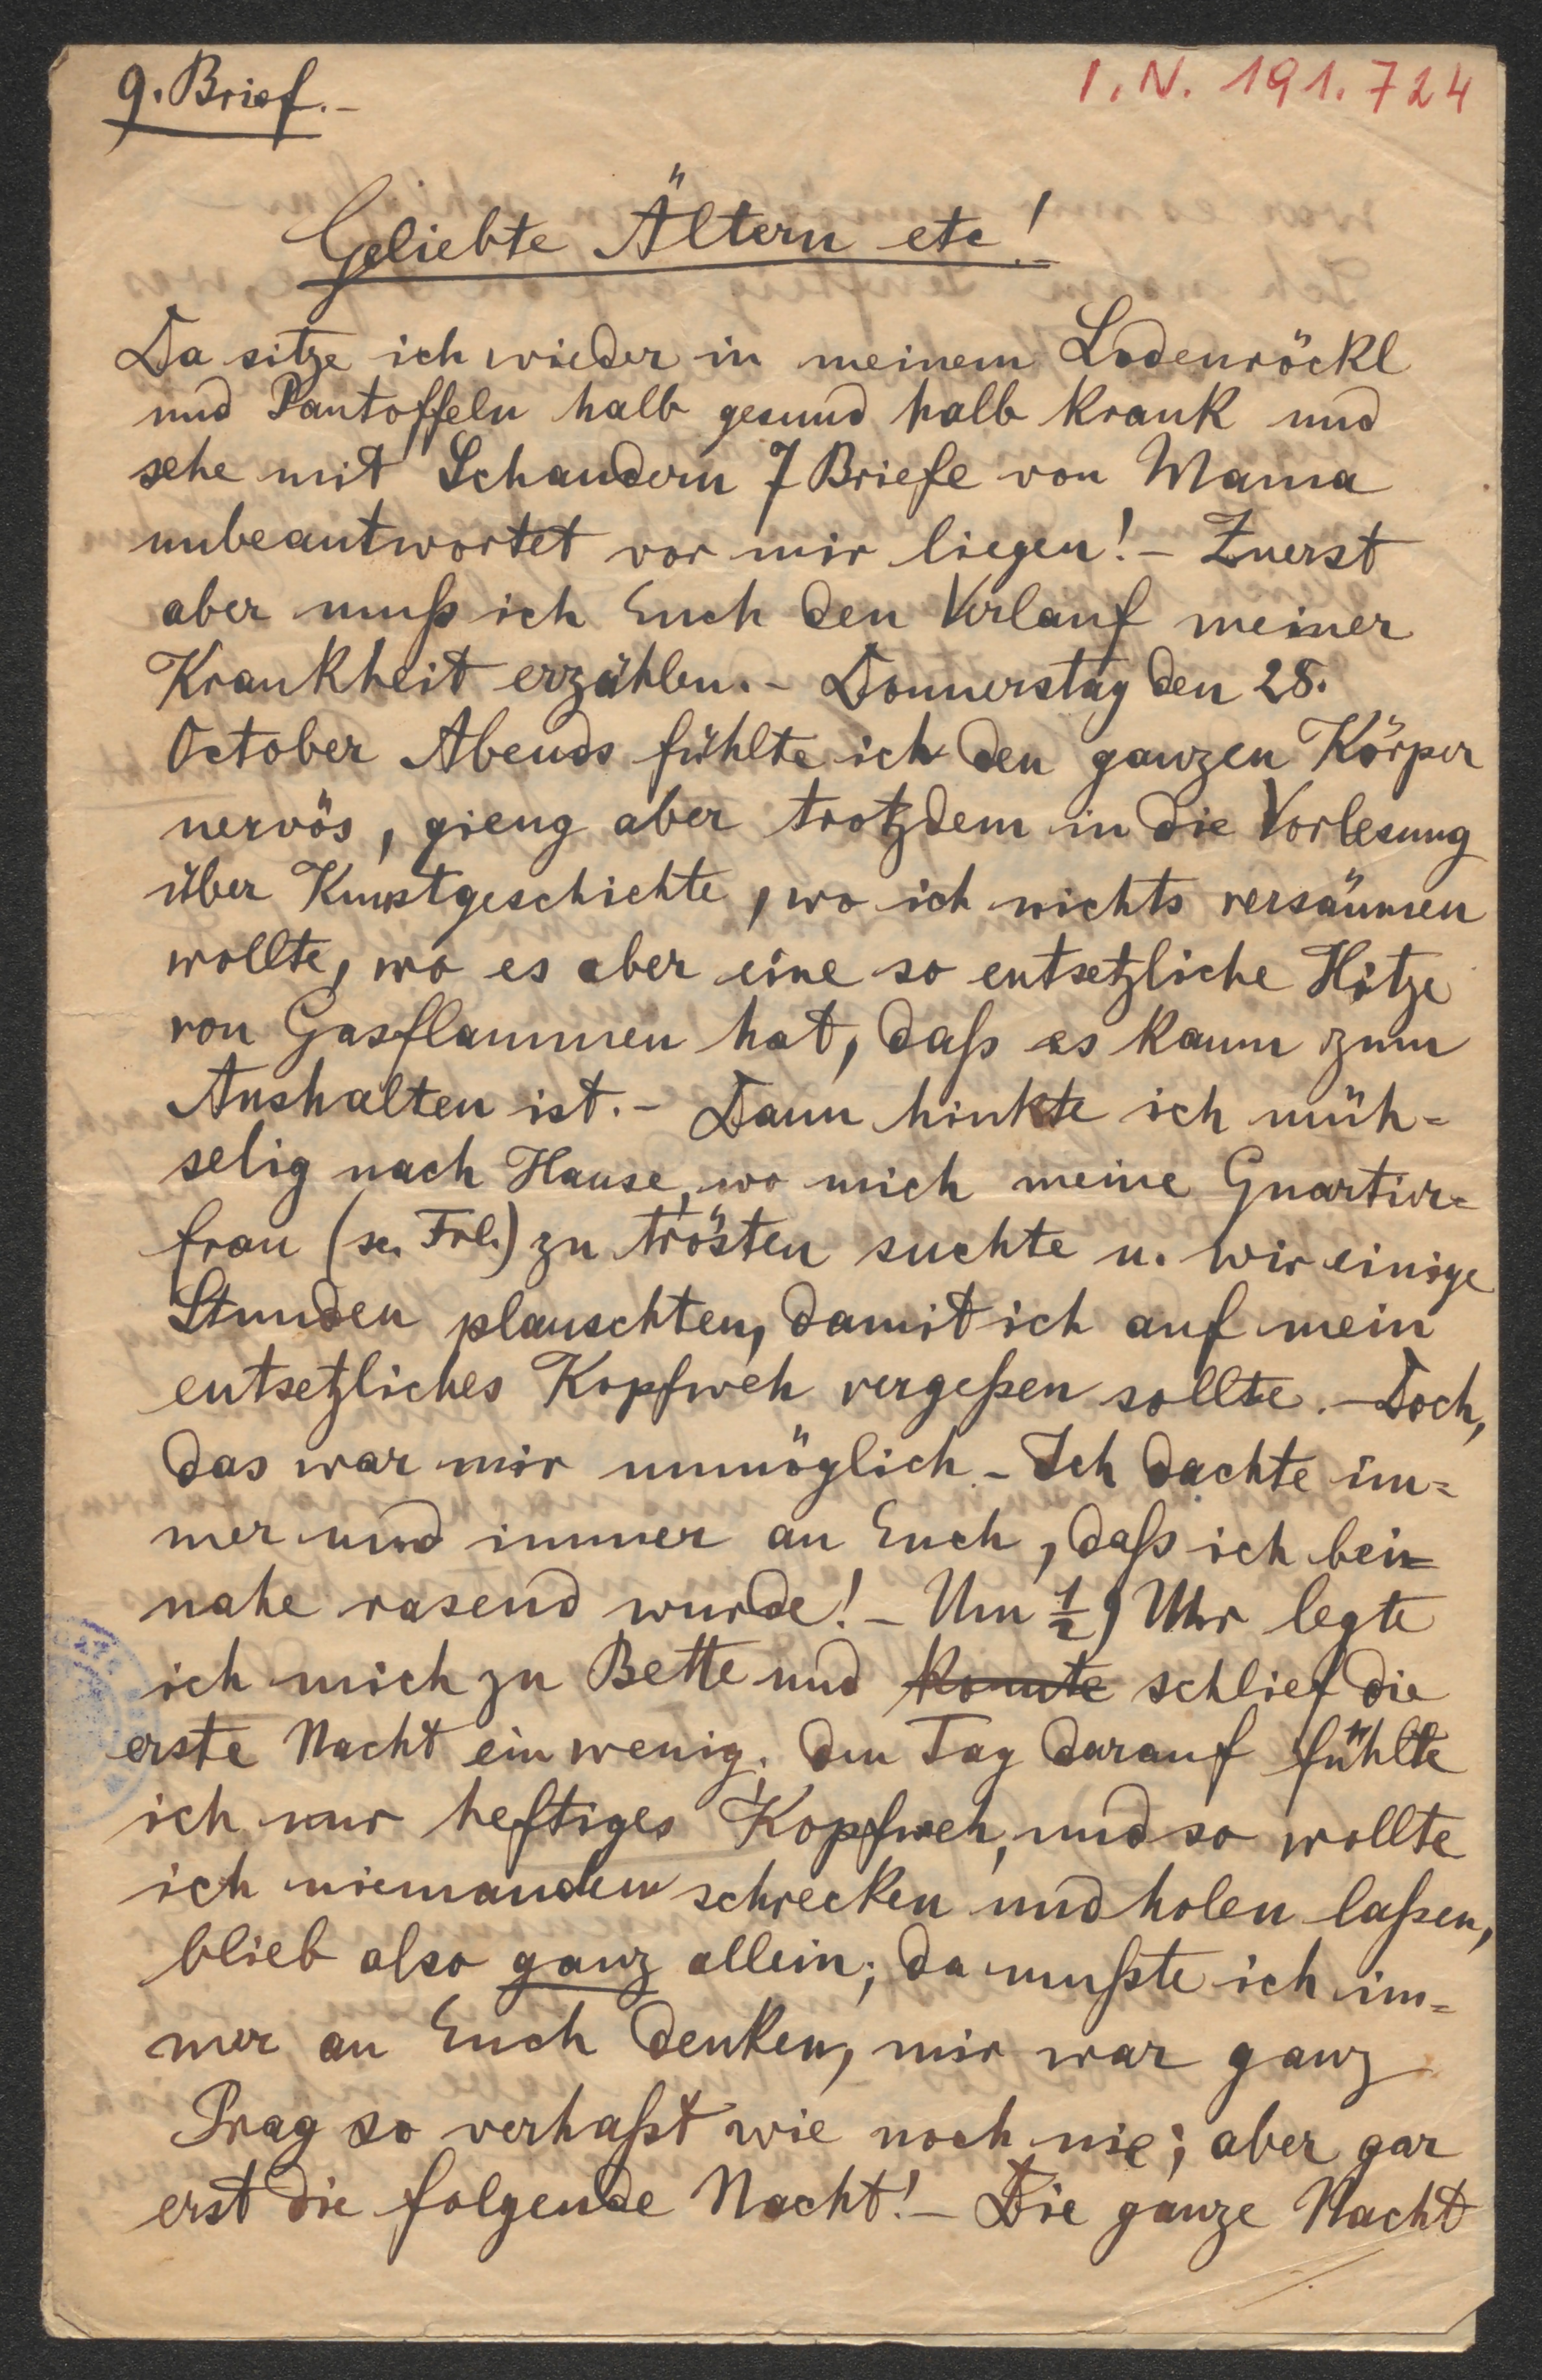 9. Brief.-
I. N. 191.724
Geliebte Ältern etc!
Da sitze ich wieder in meinem Lodenröckl
und Pantoffeln halb gesund halb krank und
sehe mit Schaudern 7 Briefe von Mama
unbeantwortet vor mir liegen! - Zuerst
aber muß ich Euch den Verlauf meiner
Krankheit erzählen. - Donnerstag den 28.
October Abends fühlte ich den ganzen Körper
nervös, gieng aber trotzdem in die Vorlesung
über Kunstgeschichte, wo ich nichts versäumen
wollte, wo es aber eine so entsetzliche Hitze
von Gasflammen hat, daß es kaum zum
Aushalten ist. - Dann hinkte ich müh=
selig nach Hause, wo mich meine Quartier=
frau (sc. Frl.) zu trösten suchte u. wir einige
Stunden plauschten, damit ich auf mein
entsetzliches Kopfweh vergeßen sollte. - Doch,
das war mir unmöglich - Ich dachte im=
mer und immer an Euch, daß ich bei=
nahe rasend wurde! - Um ½9 Uhr legte
ich mich zu Bette und konnte schlief die
erste Nacht ein wenig. Den Tag darauf fühlte
ich nur heftiges Kopfweh, und so wollte
ich niemanden schrecken und holen laßen,
blieb also ganz allein; da mußte ich im=
mer an Euch denken, mir war ganz
Prag so verhaßt wie noch nie; aber gar
erst die folgende Nacht! - Die ganze Nacht